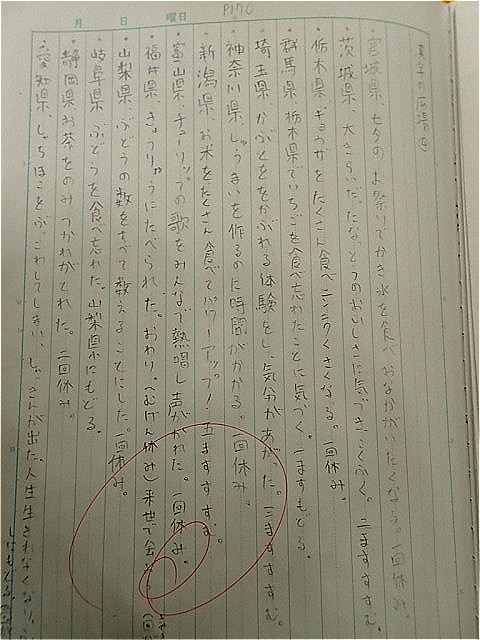 P170
月 日 曜日
漢字の広場④
・宮城県、七夕のお祭りでかき氷を食べおなかがいたくなる。一回休み。
・茨城県、大きらいだったなっとうのおいしさに気づき、こくふく。二ますすすむ。
・栃木県、ギョウザをたくさん食べニンニクくさくなる。一回休み。
・群馬県、栃木県でいちごを食べ忘れたことに気づく。一ますもどる。
・埼玉県、かぶとをかぶれる体験をし、気分があがった。三ますすすむ。
・神奈川県、しゅうまいを作るのに時間がかかる。一回休み。
・新潟県、お米をたくさん食べてパワーアップ!五ますすすむ。
・富山県、チューリップの歌をみんなで熱唱し声がかれた。一回休み。
・福井県、きょうりゅうにたべられた。おわり。(むげん休み)来世で会おう
・山梨県、ぶどうの数をすべて数えることにした。一回休み。
・岐阜県、ぶどうを食べ忘れた。山梨県にもどる。
・静岡県、お茶をのみつかれがとれた。二回休み。
・愛知県、しゃちほこをぶっこわしてしまい、しゃっきんが出た。人生生きれなくなり、